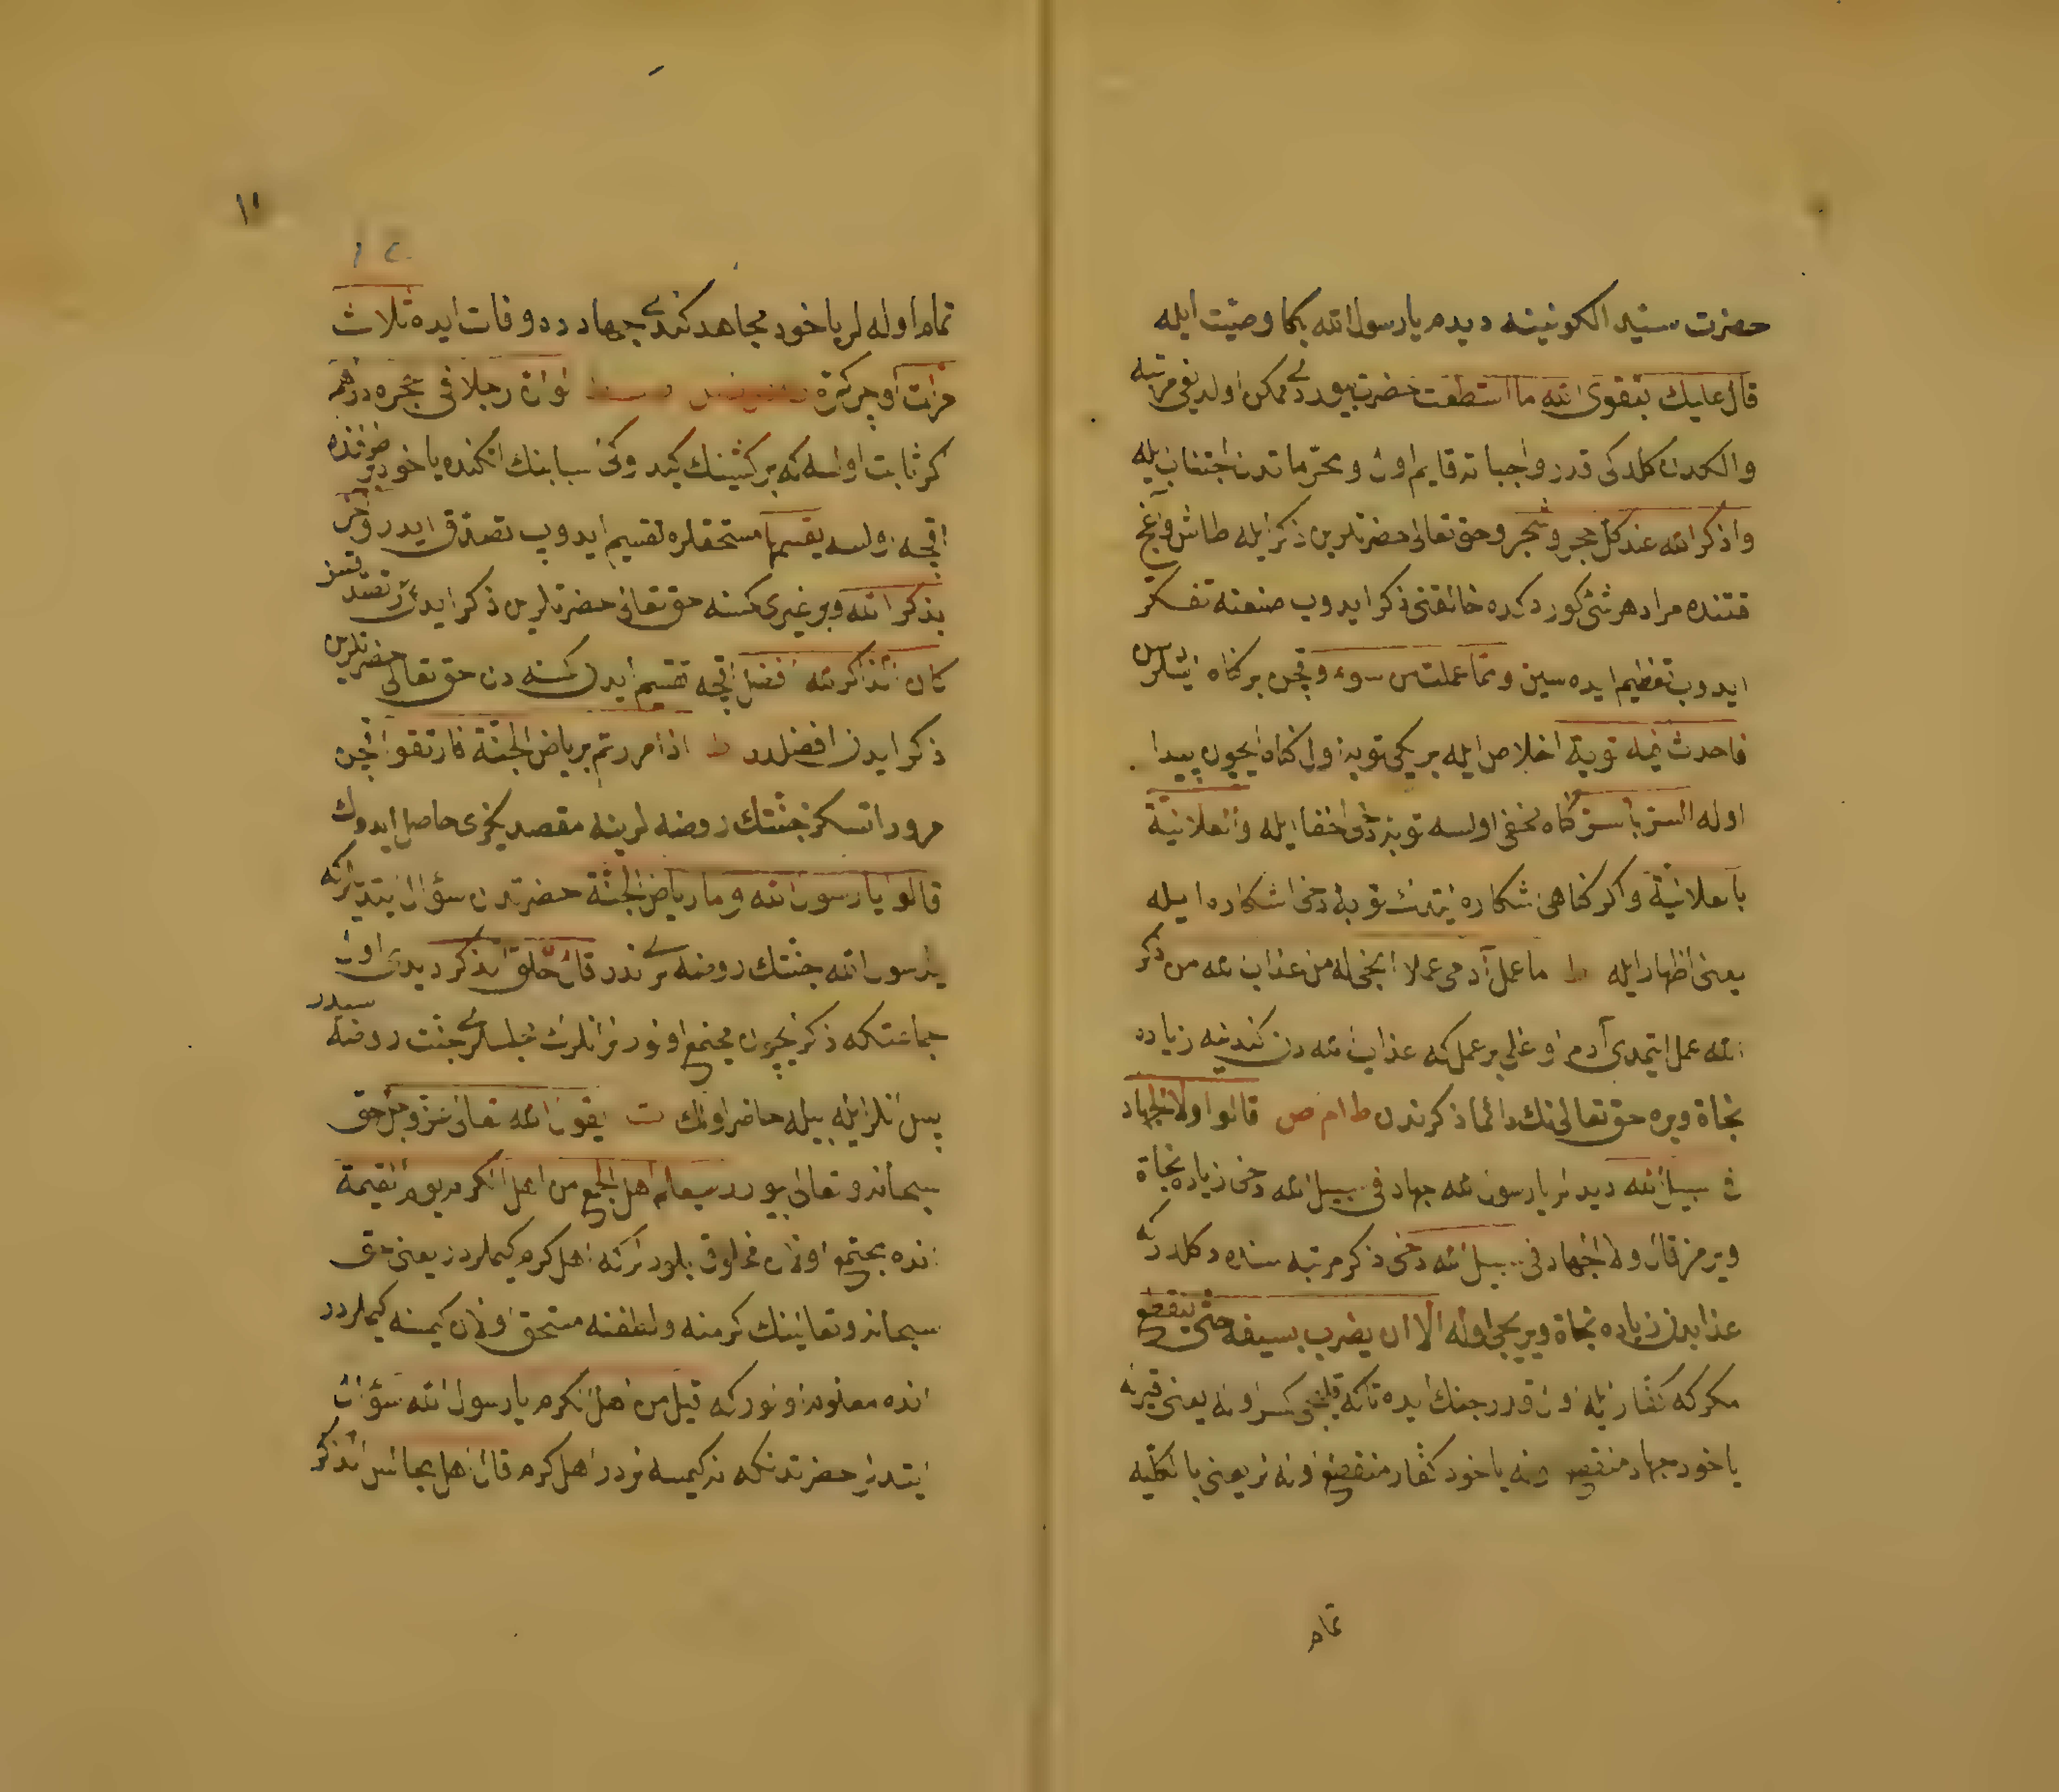 حضرت سيد الكونينه ديدم يا رسول الله بكا وصيت ايله
قال عليك بتقوى الله ما استطعت حضرت بيوردى ممكن اولديغى مرتبه
والكدن كلدكى قدر واجباته قايم اول ومحرماتدن اجتناب ايله
واذكر الله عند كل حجر وشجر وحق تعالى حضرتلرين ذكر ايله طاش واغاج
قتنده مراد هر شئ كوردكده خالقنى ذكر ايدوب صنعنه تفكر
ايدوب تعظيم ايده سين وما عملت من سوء وقچن بر كناه
فاحدث لله توبة اخلاص ايله بر يكى توبه اول كناه ايچون پيدا
ايله السر بالسر كناه مخفى اولسه توبه دخى اخفا ايله والعلانية
بالعلانية واكر كناهى اشكاره ايتدك توبه دخى اشكاره ايله
يعنى اظهار ايله ط ما عمل آدمى عملا انجى له من عذاب الله من ذكر
الله عمل ايتمدى آدم اوغلى بر عمل كه عذاب الله دن كندينه زياده
نجاة ويره حق تعالى نك دائما ذكرندن ط ا م ص قالوا ولا الجهاد
فى سبيل الله ديديلر يا رسول الله جهاد فى سبيل الله دخى زياده نجاة
ويرمز قال ولا الجهاد فى سبيل الله دخى ذكر مرتبه سنده دكلدركه
عذابدن زياده نجاة ويريجى اوله الا ان يضرب بسيفه حتى ينقطع
مكر كه كفار ايله اول قدر جنك ايده تاكه قلجى كسر اوله يعنى قيريله
ياخود جهاد منقطع اوله ياخود كفار منقطع اوله لر يعنى بالكليه
تمام
١١
١٢
تمام اوله لر ياخود مجاهد كندى جهادده وفات ايده ثلاث
مرات اوچ كره لو ان رجلا فى حجره دراهم
اكر ثابت اولسه كه بر كشينك كيدوكى لباسنك اتكنده ياخود بر طرفنده
اقچه اولسه يقسمها مستحقلره تقسيم ايدوب تصدق ايدر وآخر
يذكر الله وبر غيرى كمسنه حق تعالى حضرتلرين ذكر ايدر تصدق
كان الذاكر لله افضل اقچه تقسيم ايدن كمسنه دن حق تعالى حضرتلرين
ذكر ايدن افضلدر ط اذا مررتم برياض الجنة فارتعوا قچن
مرور ايتسكز جنتك روضه لرينه مقصد يكزى حاصل ايدوك
قالوا يا رسول الله وما رياض الجنة حضرتدن سؤال ايتديلركه
يا رسول الله جنتك روضه لرى ندر قال حلق الذكر ديدى اول
جماعتكه ذكر ايچون مجتمع اولورلر انلرك مجلسلرى جنت روضه سيدر
پس انلر ايله بيله حاضر اولك ت يقول الله تعالى عز وجل حق
سبحانه وتعالى بيورر سيعلم اهل الجمع من اهل الكرم يوم القيمة
انده مجتمع اولان مخلوق بلورلركه اهل كرم كيملردر يعنى حق
سبحانه وتعالينك كرمنه ولطفنه مستحق اولان كيمسه كيملردر
انده معلوم اولور كه قيل من اهل الكرم يا رسول الله سؤال
ايتديلر حضرتدنكه نه كيمسه لردر اهل كرم قال اهل مجالس الذكر